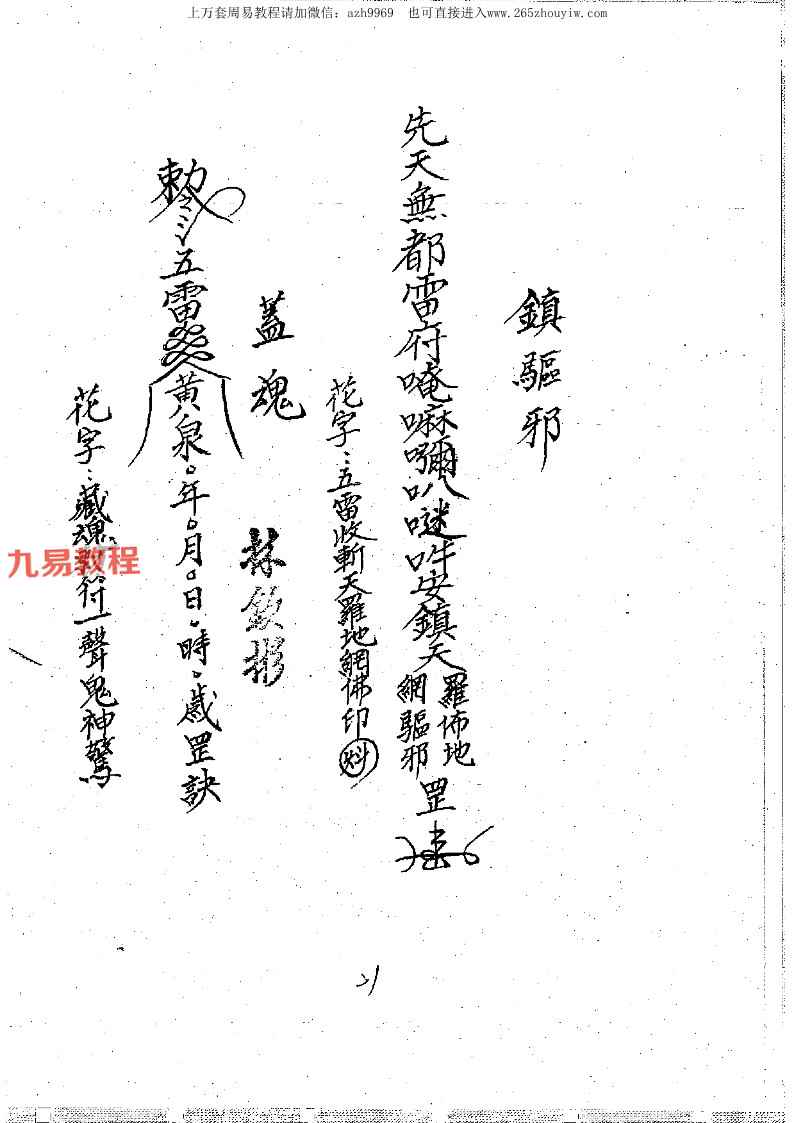 上万套周易教程请加微信：azh9969　也可直接进入www.265zhouyiw.com
鎮驅邪
先天無都雷府唵嘛嚩叭噠吽安鎮天羅佈地網驅邪罡
花字：五雷收斬天羅地網佛印
蓋魂
林欽彬
勅令五雷黃泉。年。月。日。時。歲罡訣
花字：藏魂符一聲鬼神驚
九易教程
21